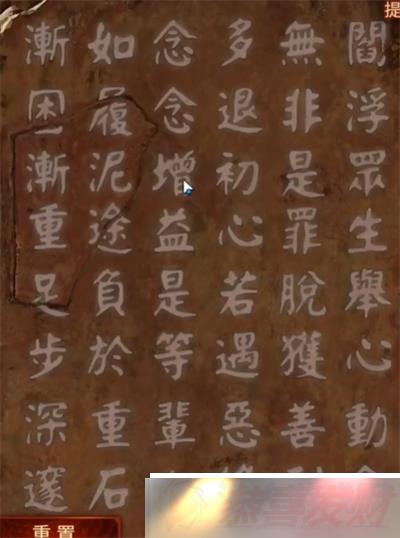 提
閻浮眾生舉心動
無非是罪脫獲善
多退初心若遇惡
念念增益是等輩
如履泥途負於重石
漸困漸重足步深邃
重置